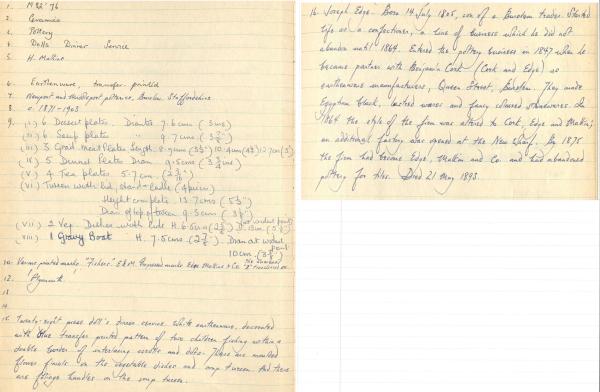 1. M82 '76
2. Ceramics
3. Pottery
4. Dolls Dinner Service
5. H. Malkin
6. Earthenware, transfer-printed
7. Newport and Middleport potteries, Burslem, Staffordshire
8. c. 1871-1903
9. (i) 6 Dessert plates. Diameter 7.6cm (3ins)
(ii) 6 Soup plates " 9.7cms (3
(iii) 3 Grad. Meat Plates Length.
(iv) 5 Dinner Plates Diam. 9.5cms (3 3/4ins)
(v) 4 Tea plates 5.7cm.
(vi) Tureen with lid, stand + ladle (4 pieces)
Height complete 13.7cms
Diam. of top of tureen 9.5cms
(vii) 2 Veg. Dishes with lids H. 6.5cm at widest point
(viii) 1 Gravy Boat H. 7.5cms Diam at widest point
10cm.
10. Various printed marks. "Fishers" E&M. Impressed marks Edge Malkin + Co.
12. 'Plymouth'
13
14
15. Twenty-eight piece doll's dinner service. White earthenware, decorated
with blue transfer printed pattern of two children fishing within a
double border of interlacing scrolls and dots. There are moulded
flower finials on the vegetable dishes and soup tureen. And there
are foliage handles on the soup tureen.
16. Joseph Edge. Born 14 July 1805, son of a Burslem trader. Started
life as a confectioner, a line of business which he did not
abandon until 1864. Entered the pottery business in 1847 when he
became partner with Benjamin Cork (Cork and Edge) as
earthenware manufacturers, Queen Street, Burslem. They made
Egyptian black, lustred wares and fancy coloured stonewares. In
1864 the style of the firm was altered to Cork, Edge and Malkin;
an additional factory was opened at the New Wharf. By 1875
the firm had become Edge, Malkin and Co. and had abandoned
pottery for tiles. Died 21 May 1893.